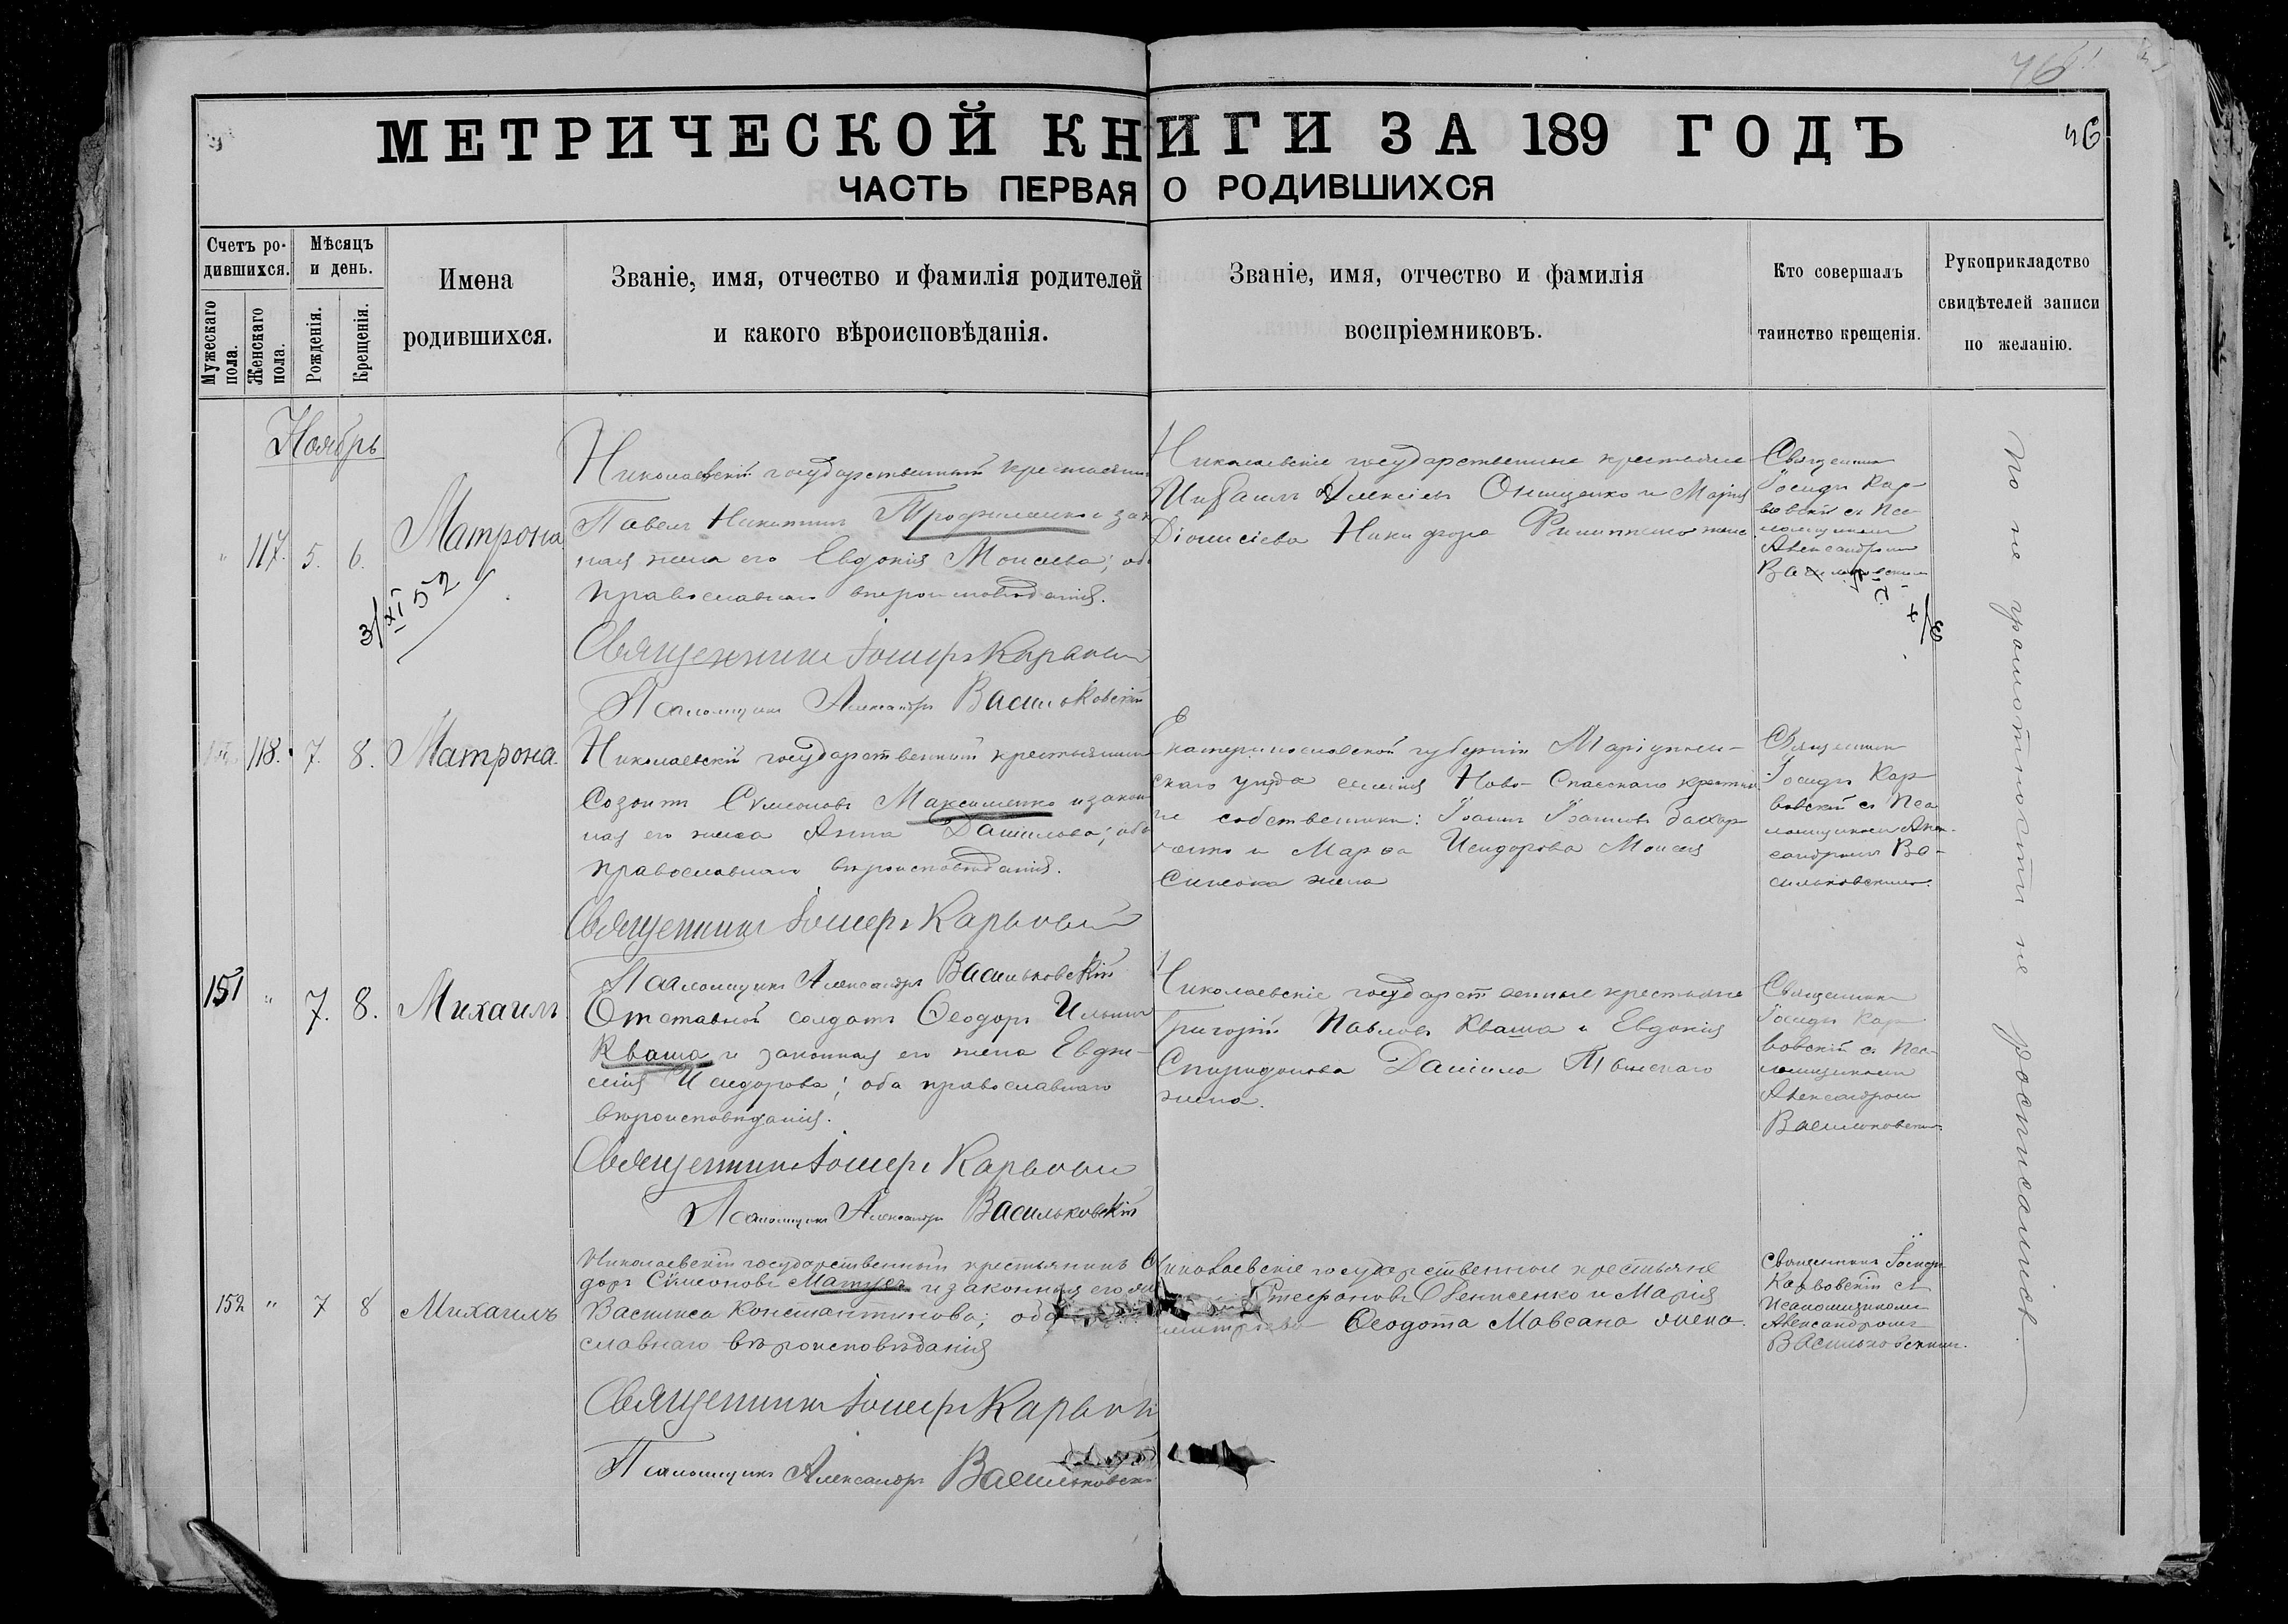 46
46
МЕТРИЧЕСКОЙ КНИГИ ЗА 189 ГОДЪ
ЧАСТЬ ПЕРВАЯ О РОДИВШИХСЯ
Счетъ ро-
дившихся.
Мужескаго
пола.
Женскаго
пола.
Мѣсяцъ
и день.
Рожденія.
Крещенія.
Имена
родившихся.
Званіе, имя, отчество и фамилія родителей
и какого вѣроисповѣданія.
Званіе, имя, отчество и фамилія
воспріемниковъ.
Кто совершалъ
таинство крещенія.
Рукоприкладство
свидѣтелей записи
по желанію.
Ноябрь
" 117. 5. 6. Матрона
3/XI 52
Николаевскій государственный крестьянин
Павелъ Никитинъ Трофименко и зак
ная жена его Евдокія Моисеева; об
православнаго вѣроисповѣданія.
Священникъ Іосифъ Карвовскій
Псаломщикъ Александръ Васильковскій
Николаевскіе государственные крестьяне
Михаилъ Алексіевъ Онищенко и Марія
Діонисіева Никифора Филиппенко жена
Священникъ
Іосифъ Кар-
вовскій съ Пса-
ломщикомъ
Александромъ
Васильковскимъ
118. 7. 8. Матрона.
Николаевскій государственный крестьянинъ
Созонтъ Симеоновъ Максименко и закон
ная его жена Анна Даніилова; обо
православнаго вѣроисповѣданія.
Священникъ Іосифъ Карвовскій
Псаломщикъ Александръ Васильковскій
Екатеринославской губерніи Маріуполь-
скаго уѣзда селенія Ново-Спасскаго крестья
не собственники: Іоаннъ Іоанновъ Захар
ченко и Марѳа Исидорова Моисея
жена
Священникъ
Іосифъ Кар-
вовскій съ Пса
ломщикомъ Алек-
сандромъ Ва-
сильковскимъ.
151 " 7. 8. Михаилъ
Отставной солдатъ Ѳеодоръ Ильинъ
Кваша и законная его жена Евдо-
кія Исидорова; оба православнаго
вѣроисповѣданія.
Священникъ Іосифъ Карвовскій
Псаломщикъ Александръ Васильковскій
Николаевскіе государственные крестьяне
Григорій Павловъ Кваша и Евдокія
Спиридонова Даніила
жена.
Священникъ
Іосифъ Кар
вовскій съ Пса-
ломщикомъ
Александромъ
Васильковскимъ
152 " 7 8 Михаилъ
Николаевскій государственный крестьянинъ Ѳ
доръ Симеоновъ Матуса и законная его же
Василиса Константинова; оба
славнаго вѣроисповѣданія
Священникъ Іосифъ Карвовскій
Псаломщикъ Александръ Васильковскі
Николаевскіе государственные крестьяне
Стефановъ Денисенко и Марія
Ѳеодота Мавсана жена.
Священникъ Іосифъ
Карвовскій съ
Псаломщикомъ
Александромъ
Васильковскимъ.
По не грамотности не росписались.